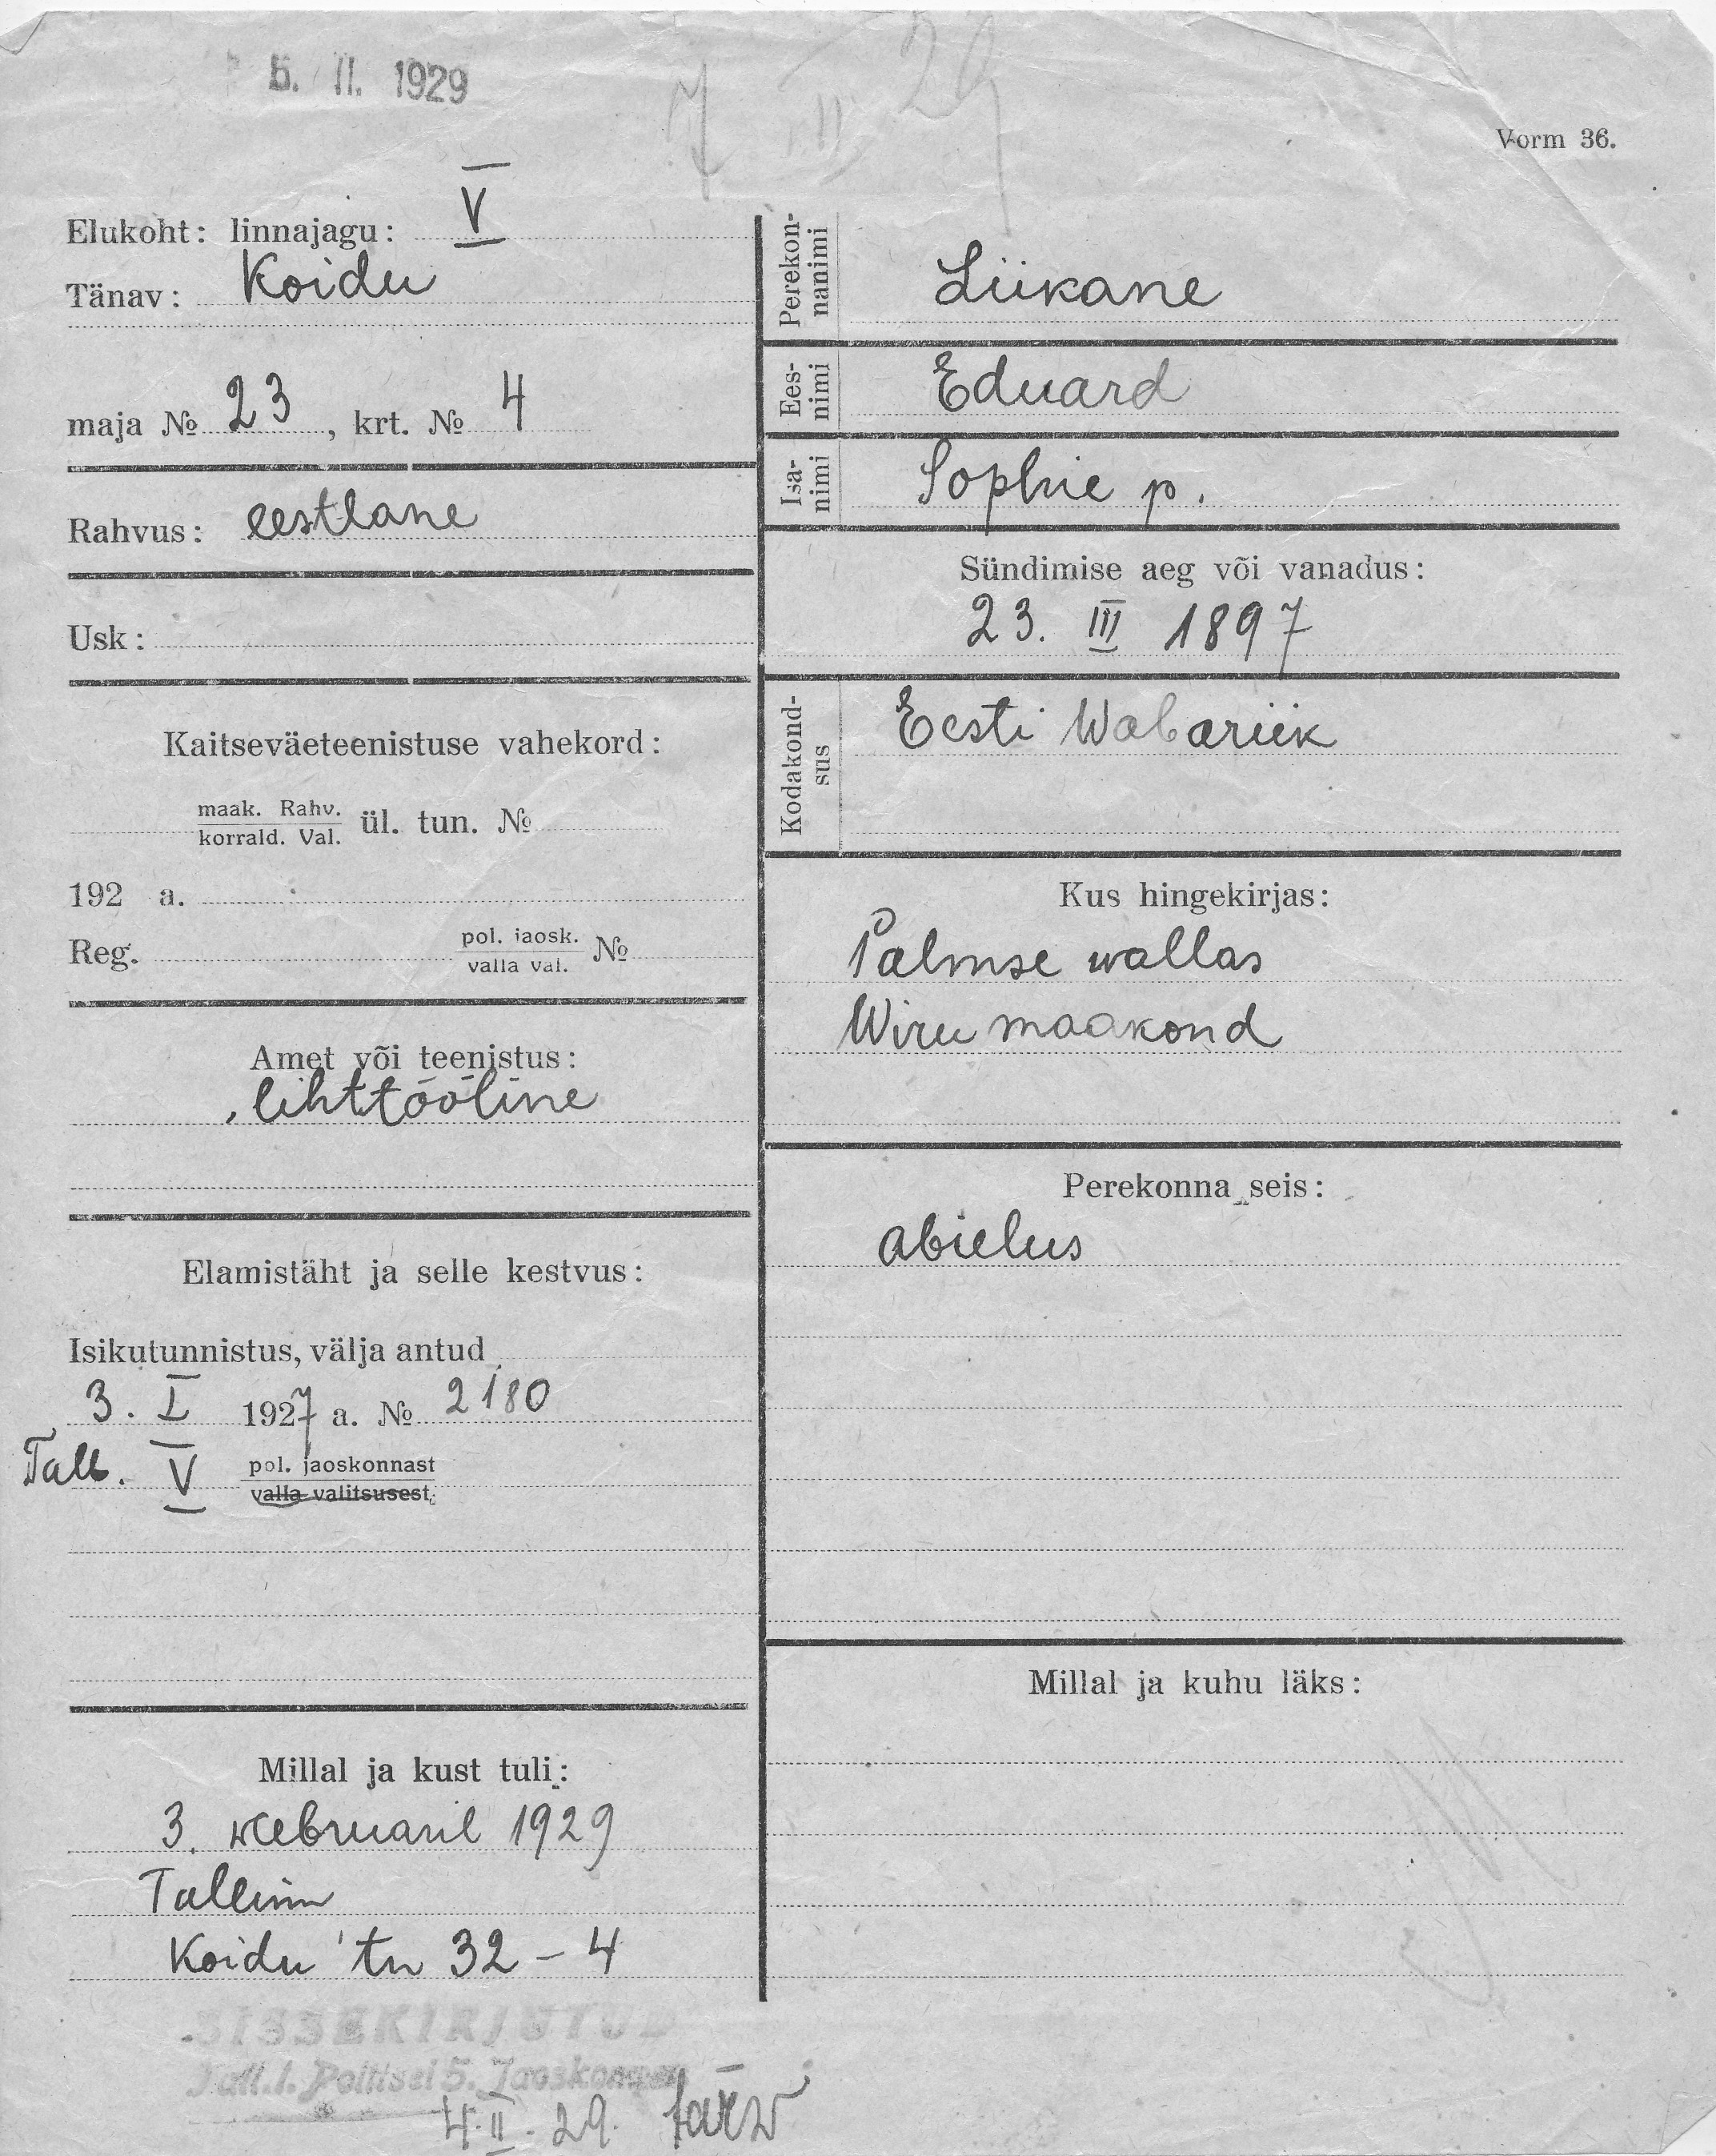 5. II. 1929
7 II 29
Vorm 36.
Elukoht: linnajagu: V
Tänav: Koidu
maja № 23, krt. № 4
Rahvus: eestlane
Usk:
Kaitseväeteenistuse vahekord:
maak. Rahv.
korrald. Val.
ül. tun. №
192 a.
Reg.
pol. jaosk.
valla val.
№
Amet või teenistus:
lihttööline
Elamistäht ja selle kestvus:
Isikutunnistus, välja antud
3. I 1927 a. № 2180
Tall. V pol. jaoskonnast
valla valitsusest,
Millal ja kust tuli:
3. webruaril 1929
Tallinn
Koidu tn 32 – 4
Perekon-
nanimi
Liikane
Ees-
nimi
Eduard
Isa-
nimi
Sophie p.
Sündimise aeg või vanadus:
23. III 1897
Kodakond-
sus
Eesti Wabariik
Kus hingekirjas:
Palmse wallas
Wiru maakond
Perekonna seis:
abielus
Millal ja kuhu läks:
SISSEKIRJUTUD
Tall.l. Politsei 5. Jaoskonnas
4. II. 29.